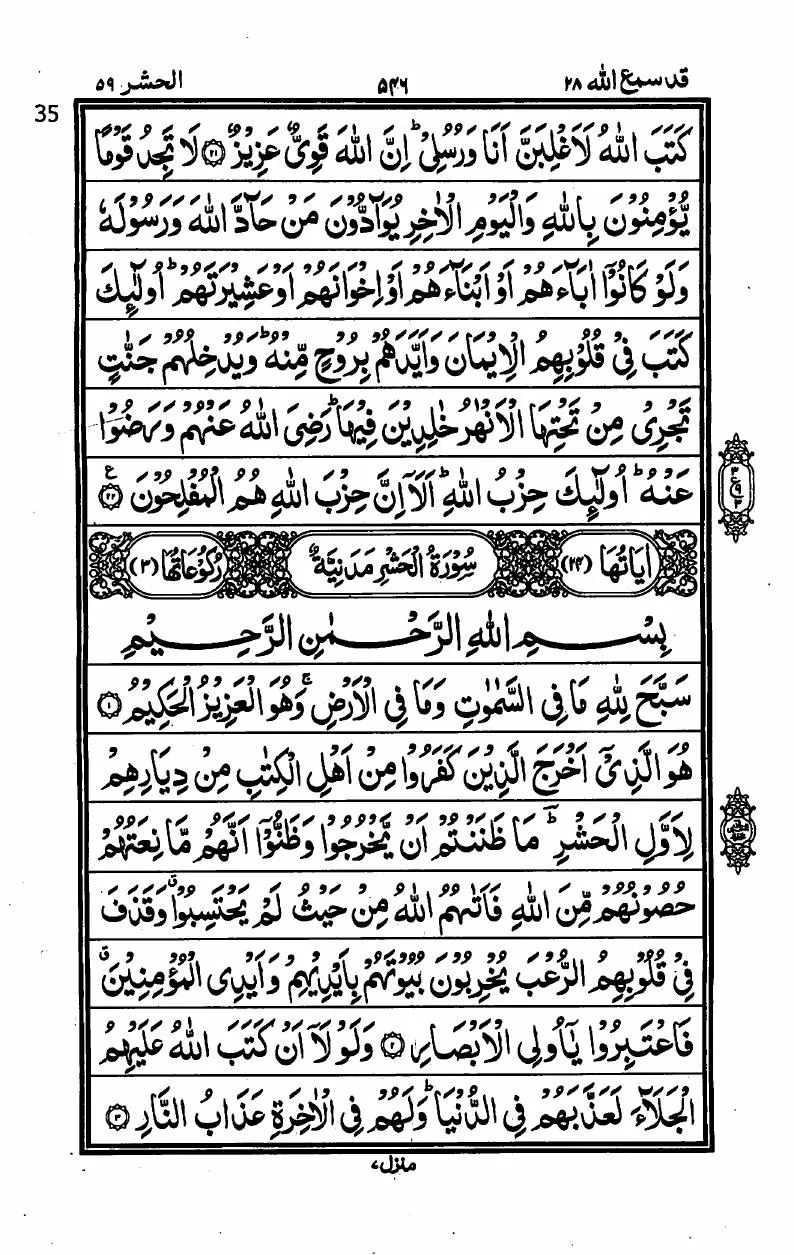 قد سمع الله ۲۸
۵۴۶
الحشر ۵۹
35
كَتَبَ اللّٰهُ لَاَغْلِبَنَّ اَنَا وَرُسُلِيْ ؕ اِنَّ اللّٰهَ قَوِيٌّ عَزِيْزٌ ﴿۲۱﴾ لَا تَجِدُ قَوْمًا
يُّؤْمِنُوْنَ بِاللّٰهِ وَالْيَوْمِ الْاٰخِرِ يُوَآدُّوْنَ مَنْ حَآدَّ اللّٰهَ وَرَسُوْلَهٗ
وَلَوْ كَانُوْۤا اٰبَآءَهُمْ اَوْ اَبْنَآءَهُمْ اَوْ اِخْوَانَهُمْ اَوْ عَشِيْرَتَهُمْ ؕ اُولٰٓئِكَ
كَتَبَ فِيْ قُلُوْبِهِمُ الْاِيْمَانَ وَاَيَّدَهُمْ بِرُوْحٍ مِّنْهُ ؕ وَيُدْخِلُهُمْ جَنّٰتٍ
تَجْرِيْ مِنْ تَحْتِهَا الْاَنْهٰرُ خٰلِدِيْنَ فِيْهَا ؕ رَضِيَ اللّٰهُ عَنْهُمْ وَرَضُوْا
عَنْهُ ؕ اُولٰٓئِكَ حِزْبُ اللّٰهِ ؕ اَلَاۤ اِنَّ حِزْبَ اللّٰهِ هُمُ الْمُفْلِحُوْنَ ﴿۲۲﴾ ع
۳ ع ۹ ۲
اٰيَاتُهَا (۲۴) سُوْرَةُ الْحَشْرِ مَدَنِيَّةٌ رُكُوْعَاتُهَا (۳)
بِسْمِ اللّٰهِ الرَّحْمٰنِ الرَّحِيْمِ
سَبَّحَ لِلّٰهِ مَا فِي السَّمٰوٰتِ وَمَا فِي الْاَرْضِ ۚ وَهُوَ الْعَزِيْزُ الْحَكِيْمُ ﴿۱﴾
هُوَ الَّذِيْۤ اَخْرَجَ الَّذِيْنَ كَفَرُوْا مِنْ اَهْلِ الْكِتٰبِ مِنْ دِيَارِهِمْ
لِاَوَّلِ الْحَشْرِ ؕ مَا ظَنَنْتُمْ اَنْ يَّخْرُجُوْا وَظَنُّوْۤا اَنَّهُمْ مَّانِعَتُهُمْ
حُصُوْنُهُمْ مِّنَ اللّٰهِ فَاَتٰىهُمُ اللّٰهُ مِنْ حَيْثُ لَمْ يَحْتَسِبُوْا ۗ وَقَذَفَ
فِيْ قُلُوْبِهِمُ الرُّعْبَ يُخْرِبُوْنَ بُيُوْتَهُمْ بِاَيْدِيْهِمْ وَاَيْدِي الْمُؤْمِنِيْنَ ۗ
فَاعْتَبِرُوْا يٰۤاُولِي الْاَبْصَارِ ﴿۲﴾ وَلَوْ لَاۤ اَنْ كَتَبَ اللّٰهُ عَلَيْهِمُ
الْجَلَآءَ لَعَذَّبَهُمْ فِي الدُّنْيَا ؕ وَلَهُمْ فِي الْاٰخِرَةِ عَذَابُ النَّارِ ﴿۳﴾
منزل ۷